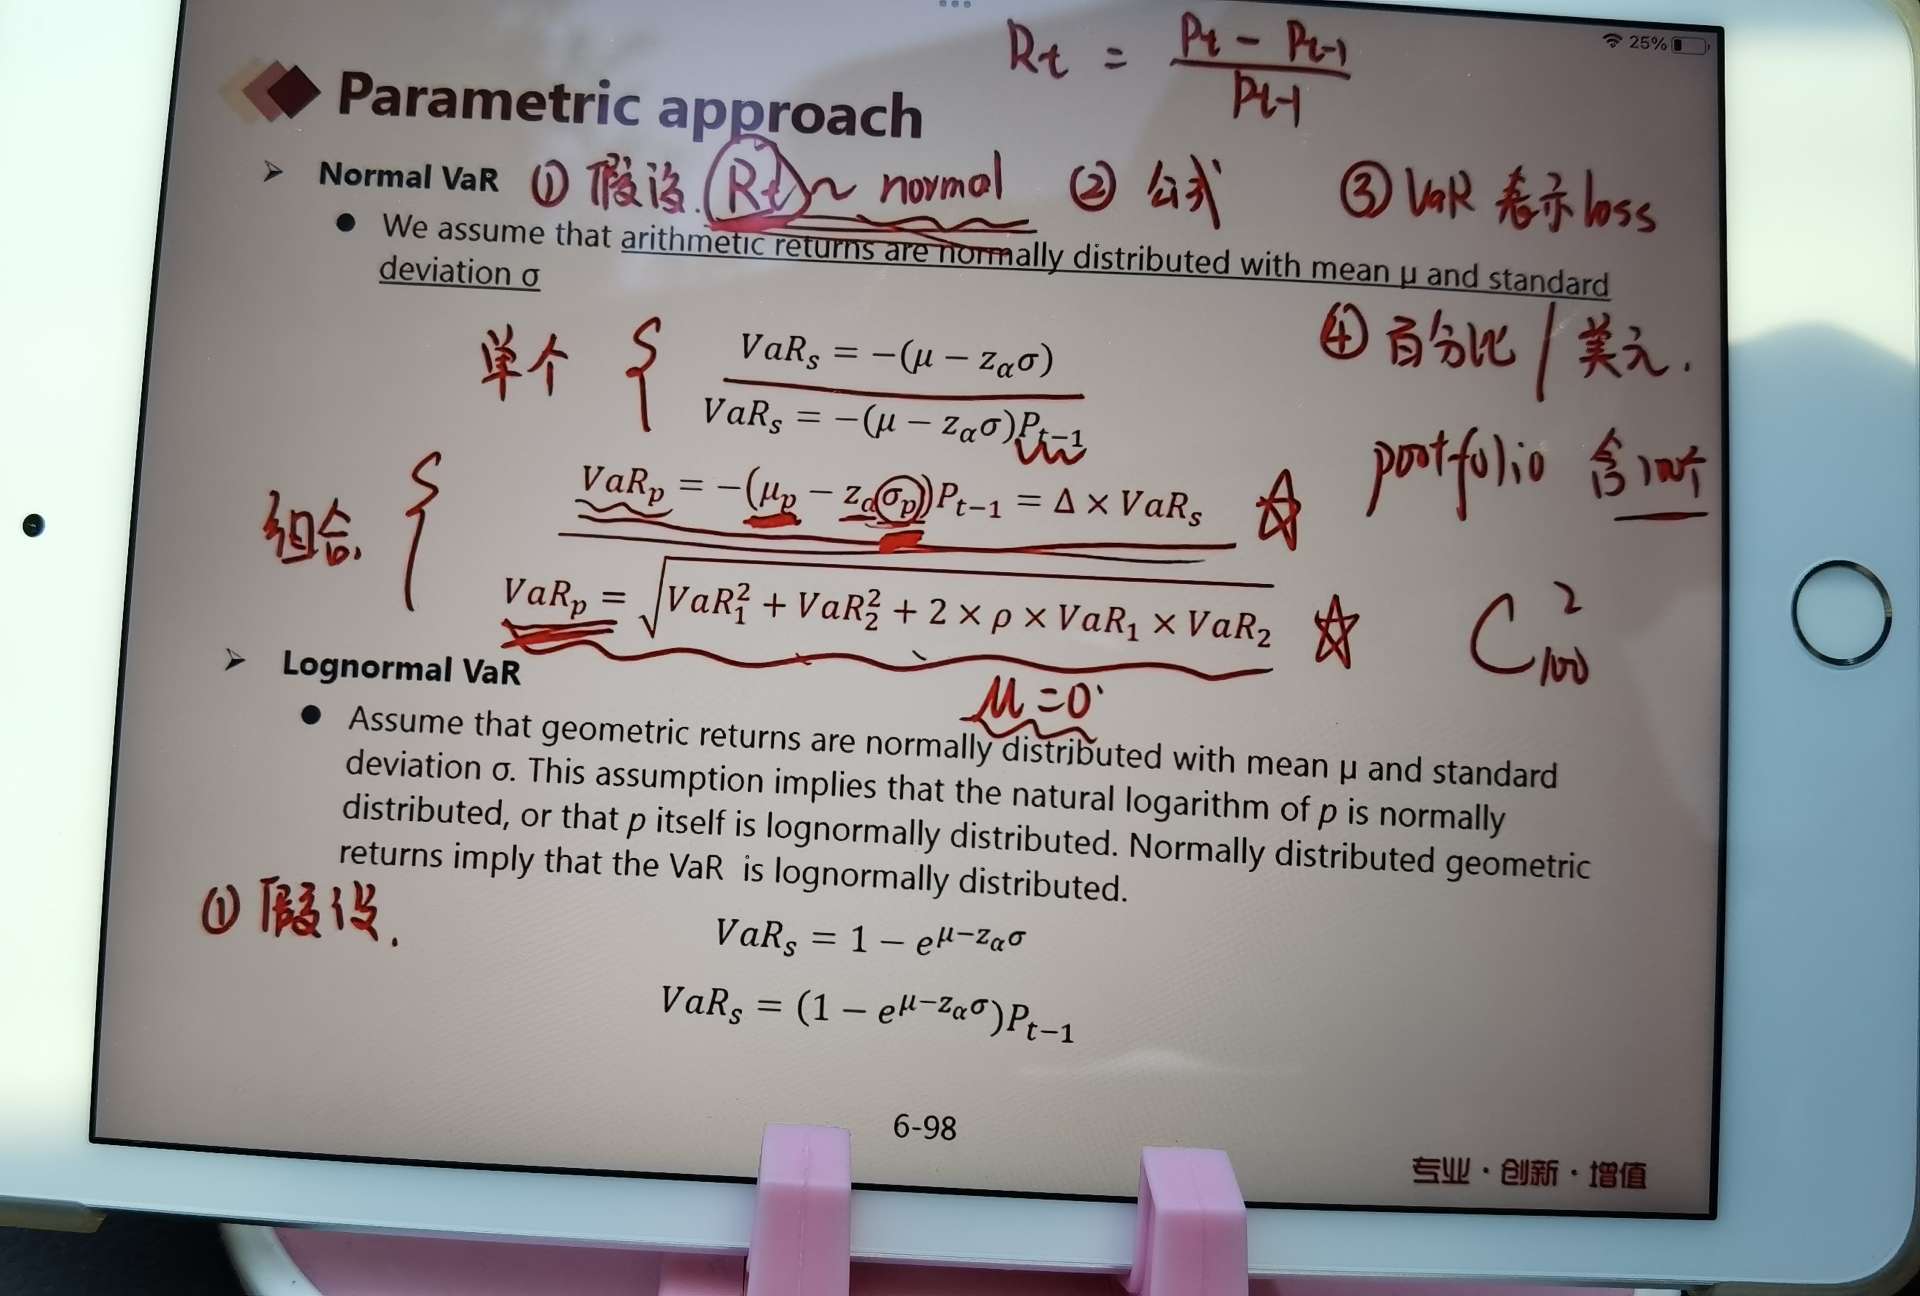 25%
Rt = (Pt − Pt-1) / Pt-1
Parametric approach
➤ Normal VaR ① 假设. Rt ~ normal ② 公式 ③ VaR 表示 loss
● We assume that arithmetic returns are normally distributed with mean μ and standard
deviation σ
④ 百分比 / 美元.
单个 { VaRₛ = −(μ − z_α σ)
VaRₛ = −(μ − z_α σ)P_{t−1}
portfolio 含
组合. { VaR_p = −(μ_p − z_α σ_p)P_{t−1} = Δ × VaRₛ ☆
VaR_p = √(VaR₁² + VaR₂² + 2 × ρ × VaR₁ × VaR₂) ☆
C²₁₀₀
μ = 0
➤ Lognormal VaR
● Assume that geometric returns are normally distributed with mean μ and standard
deviation σ. This assumption implies that the natural logarithm of p is normally
distributed, or that p itself is lognormally distributed. Normally distributed geometric
returns imply that the VaR is lognormally distributed.
① 假设.
VaRₛ = 1 − e^{μ−z_α σ}
VaRₛ = (1 − e^{μ−z_α σ})P_{t−1}
6-98
专业·创新·增值